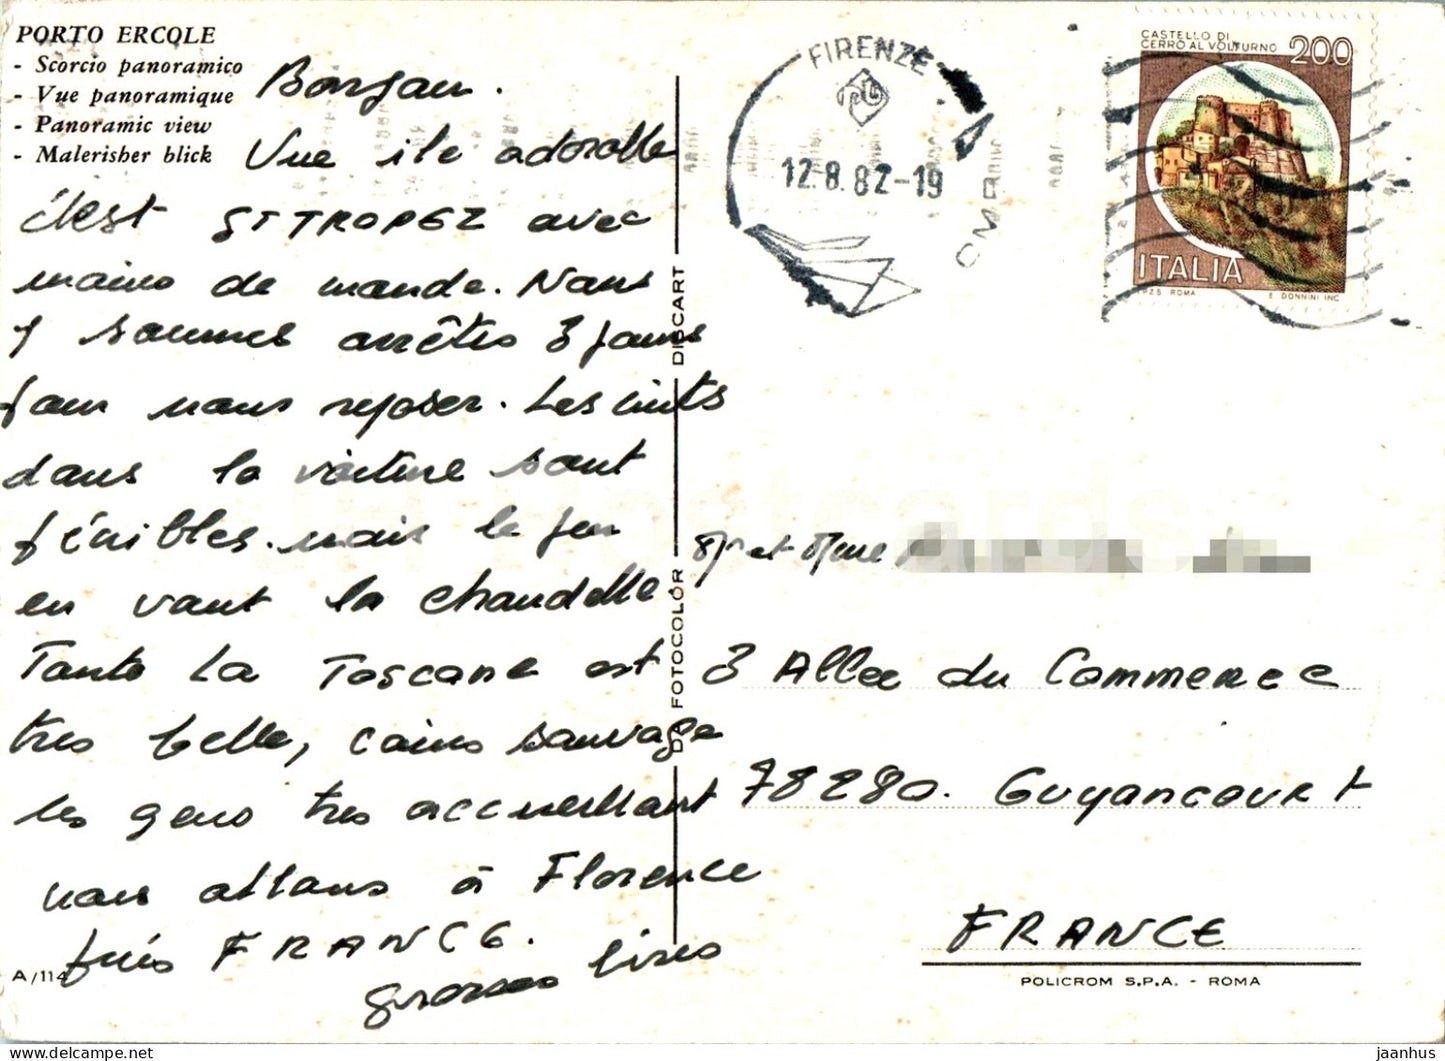 PORTO ERCOLE
- Scorcio panoramico
- Vue panoramique
- Panoramic view
- Malerisher blick
Bonjour.
Vue ile adorable
c'est ST TROPEZ avec
moins de monde. Nous
y sommes arrêtés 3 jours
pour nous reposer. Les nuits
dans la voiture sont
pénibles. mais le jeu
en vaut la chandelle
Toute La Toscane est
tres belle, coins sauvage
les gens tres accueillant
nous allons à Florence
puis FRANCE.
grosses bises
A/114
DA FOTOCOLOR DISCART
FIRENZE
12.8.82-19
CMP
CASTELLO DI
CERRO AL VOLTURNO 200
ITALIA
I.P.Z.S. ROMA E. DONNINI INC.
Mr et Mme
3 Allee du Commerce
78280. Guyancourt
FRANCE
POLICROM S.P.A. - ROMA
Postcards
jaanhus | europeancollectibles.com